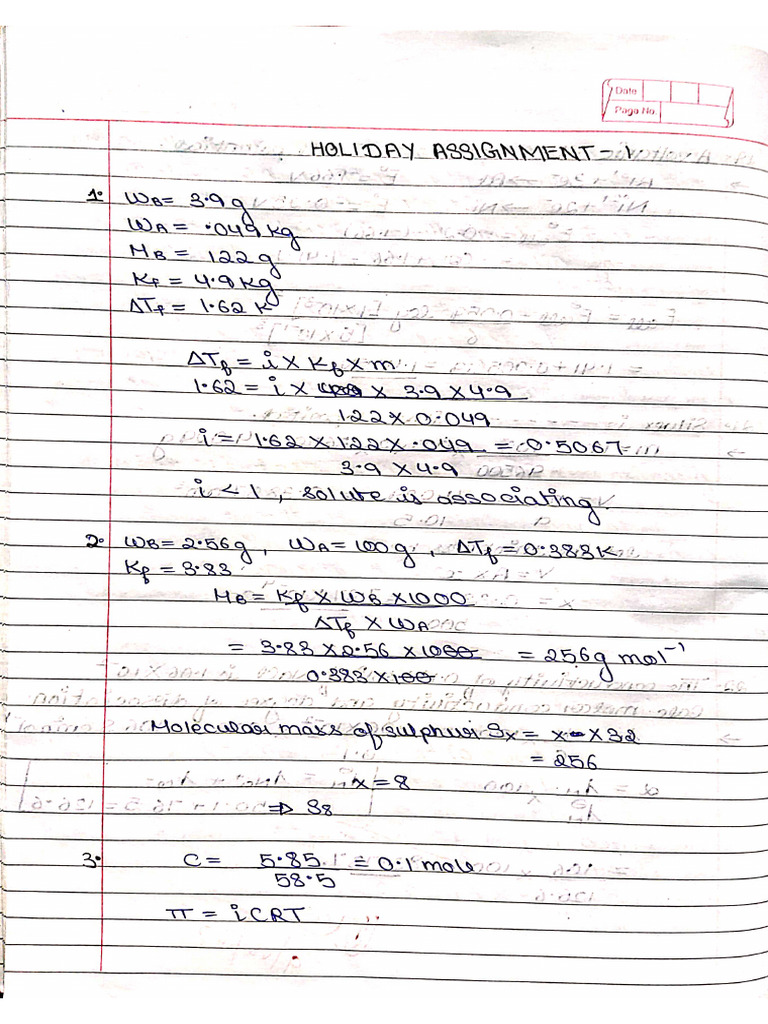 Date
Page No.
HOLIDAY ASSIGNMENT - 1
1. WB = 3.9 g
WA = .049 kg
MB = 122 g
Kf = 4.9 kg
ΔTf = 1.62 K
ΔTf = i x Kf x m
1.62 = i x x 3.9 x 4.9
122 x 0.049
i = 1.62 x 122 x .049 = 0.5067
3.9 x 4.9
i < 1, solute is associating.
2. WB = 2.56g, WA = 100 g, ΔTf = 0.383K
Kf = 3.83
MB = Kf x WB x 1000
ΔTf x WA
= 3.83 x 2.56 x 1000 = 256g mol⁻¹
0.383 x 100
Molecular mass of sulphur Sx = x x 32
= 256
x = 8
⇒ S8
3. C = 5.85 = 0.1 mole
58.5
π = iCRT